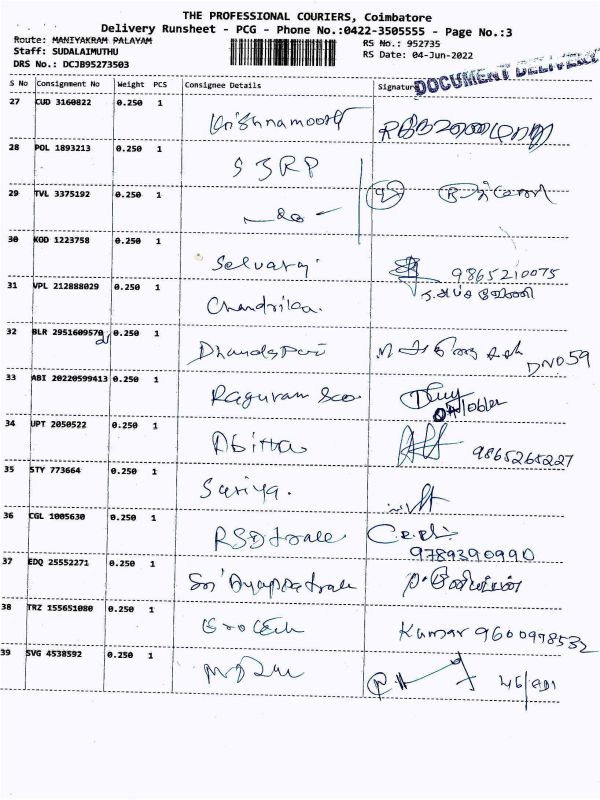 THE PROFESSIONAL COURIERS, Coimbatore
Delivery Runsheet - PCG - Phone No.:0422-3505555 - Page No.:3
Route: MANIYAKRAM PALAYAM RS No.: 952735
Staff: SUDALAIMUTHU RS Date: 04-Jun-2022
DRS No.: DCJB95273503
DOCUMENT DELIVERY
S No Consignment No Weight PCS Consignee Details Signature
27 CUD 3160822 0.250 1 Krishnamoorth
28 POL 1893213 0.250 1 S3RP
29 TVL 3375192 0.250 1 - do -
30 KOD 1223758 0.250 1 Selvaraj 9865210075
31 VPL 212888029 0.250 1 Chandrika.
32 BLR 2951609570 0.250 1 DNO59
33 ABI 20220599413 0.250 1 Raguram
34 UPT 2050522 0.250 1 Abitha 9865265227
35 STY 773664 0.250 1 Sariya.
36 CGL 1005630 0.250 1 RSD trade
9789390990
37 EDQ 25552271 0.250 1 Sri Ayyappa trade
38 TRZ 155651080 0.250 1 Kumar 9600978532
39 SVG 4538592 0.250 1